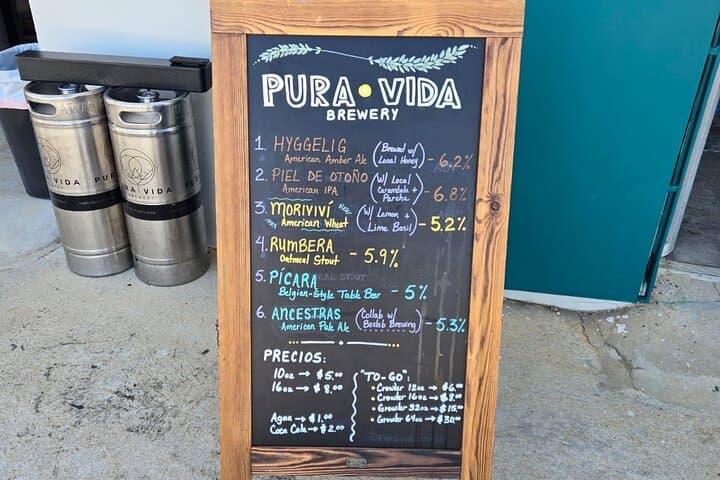 PURA VIDA
BREWERY
1. HYGGELIG
American Amber Ale
(Brewed w/
Local Honey)
- 6.2%
2. PIEL DE OTOÑO
American IPA
(w/ Local
Carambola +
Parcha)
- 6.8%
3. MORIVIVÍ
American Wheat
(w/ Lemon +
Lime Basil)
- 5.2%
4. RUMBERA
Oatmeal Stout
- 5.9%
5. PÍCARA
Belgian-Style Table Beer
- 5%
6. ANCESTRAS
American Pale Ale
(Collab w/
Boxlab Brewing)
- 5.3%
PRECIOS:
10oz → $5.00
16oz → $8.00
Agua → $1.00
Coca Cola → $2.00
"TO-GO":
• Crowler 12oz → $6.00
• Crowler 16oz → $8.00
• Growler 32oz → $15.00
• Growler 64oz → $30.00
VIDA
PURA VIDA